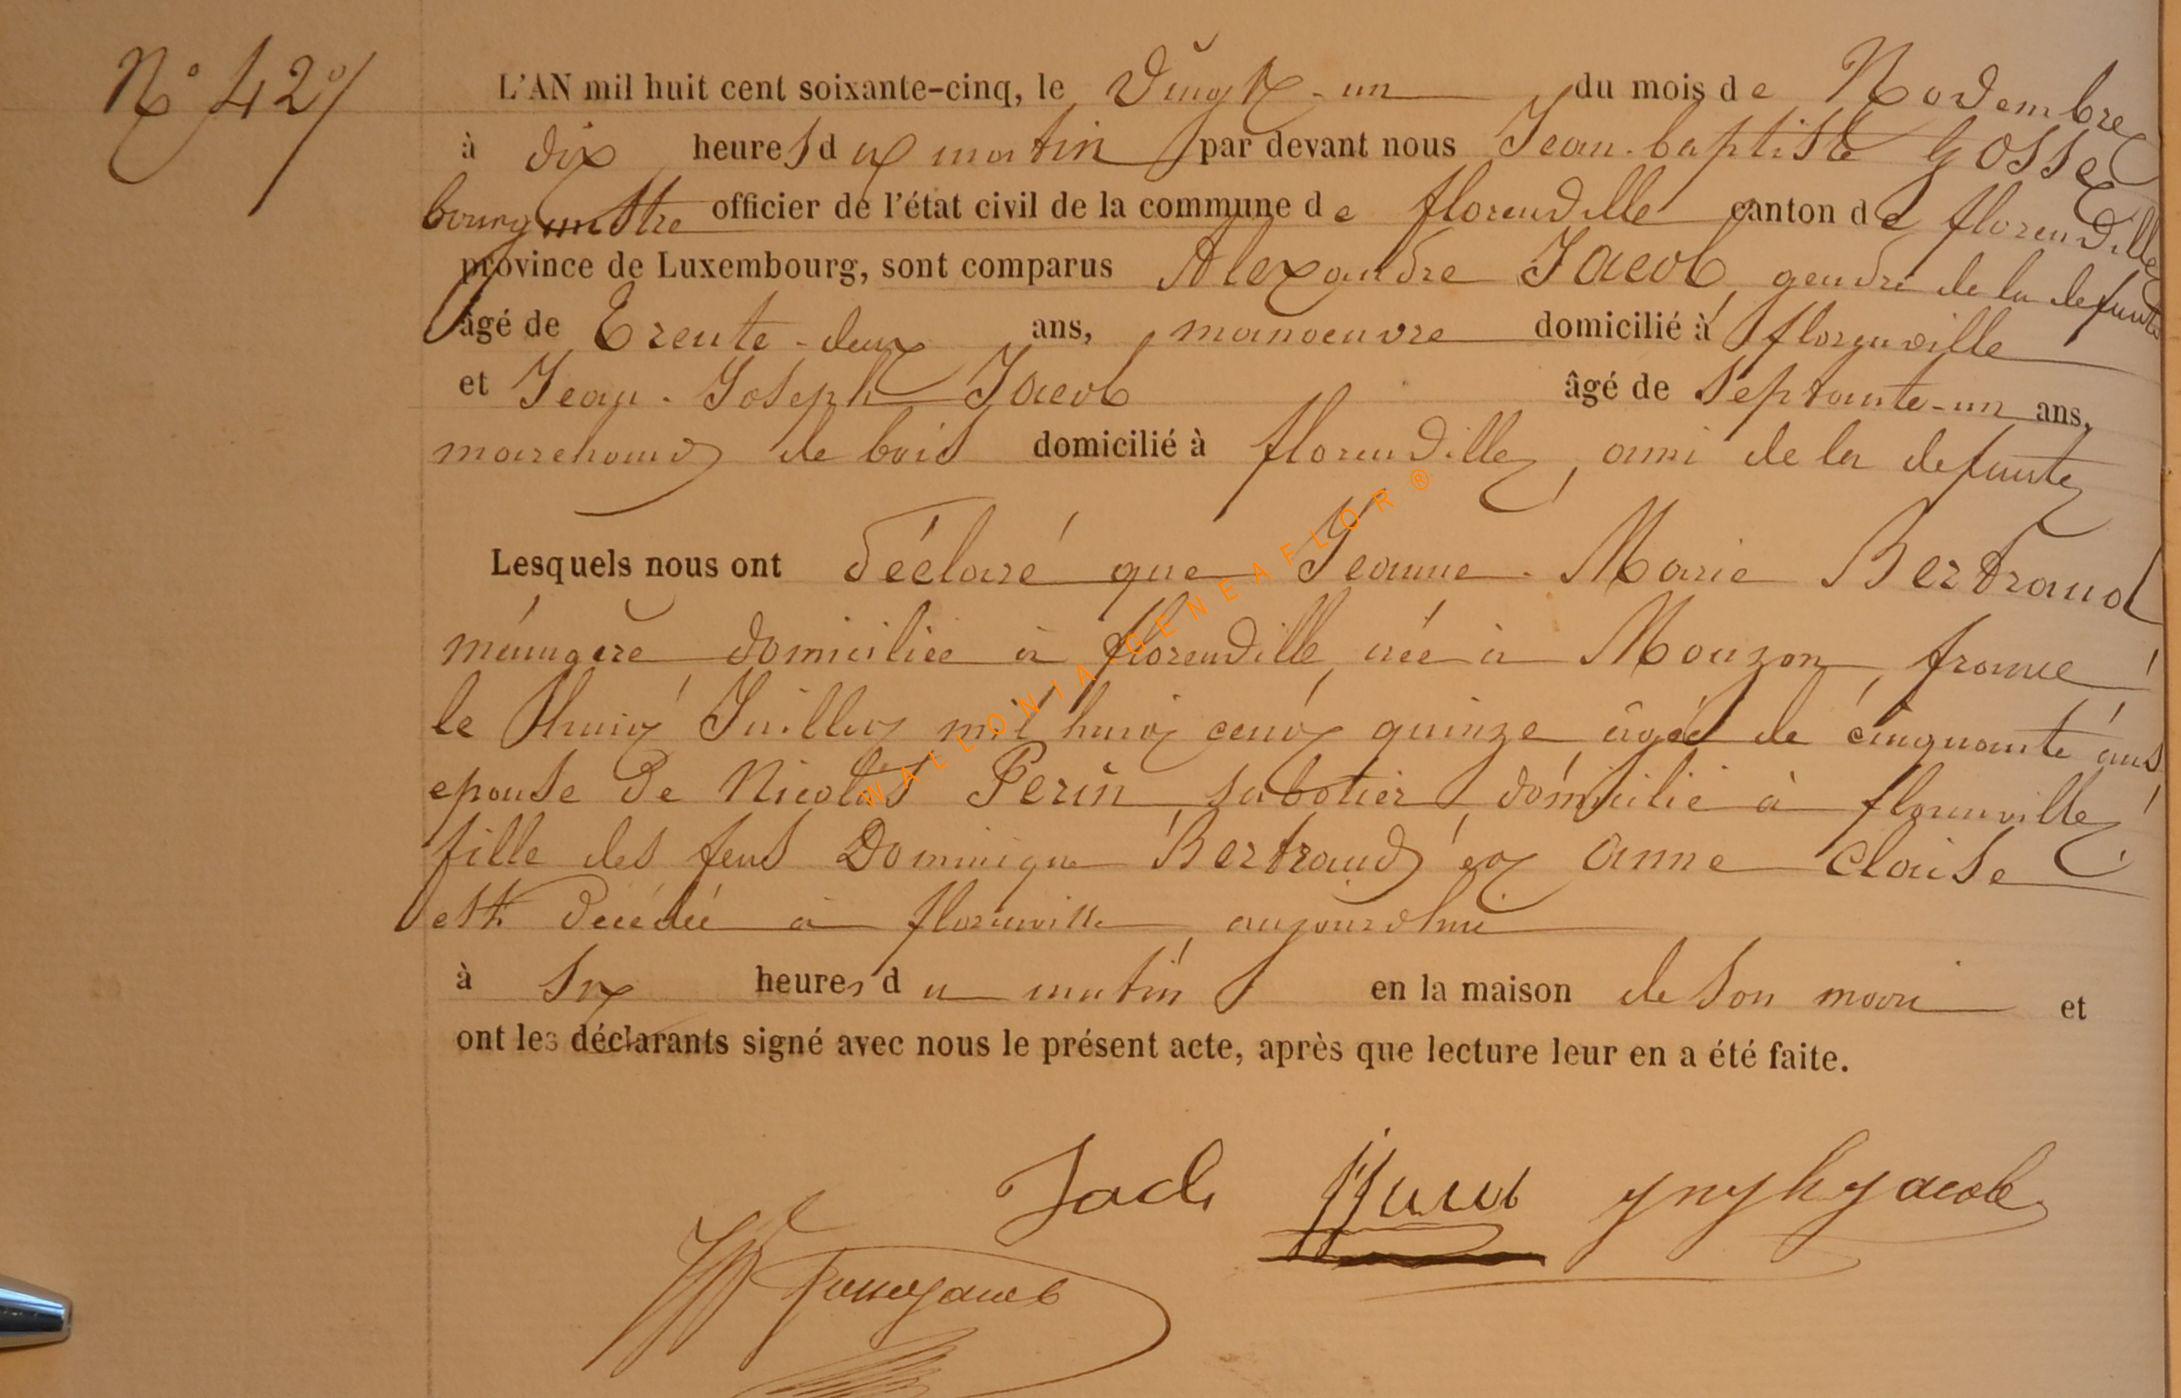 N° 42
L'AN mil huit cent soixante-cinq, le vingt-un du mois de Novembre
à dix heures du matin par devant nous Jean-baptiste Gosse
bourgmestre officier de l'état civil de la commune de florenville canton de florenville
province de Luxembourg, sont comparus Alexandre Jacob, gendre de la defunte
âgé de trente-deux ans, manoeuvre domicilié à florenville
et Jean-Joseph Jacob âgé de septante-un ans,
marchand de bois domicilié à florenville, ami de la defunte
Lesquels nous ont déclaré que Jeanne-Marie Bertrand
ménagère domiciliée à florenville, née à Mouzon, france
le huit Juillet mil huit cent quinze âgée de cinquante ans
epouse de Nicolas Perin, sabotier, domicilié à florenville
fille des feus Dominique Bertrand et anne Claise
est décédée à florenville aujourdhui
à six heures du matin en la maison de son mari et
ont les déclarants signé avec nous le présent acte, après que lecture leur en a été faite.
Jacob
Jacob
WALLONIA GENEAFLOR®